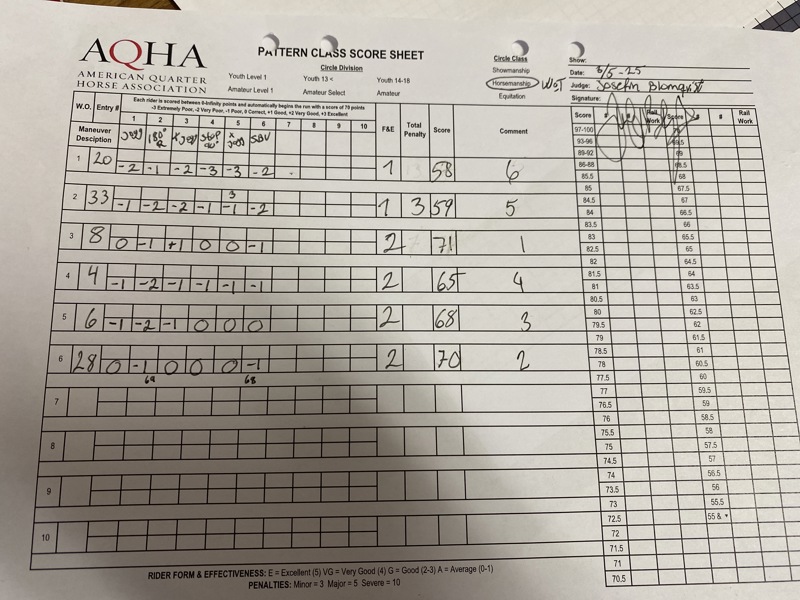 AQHA
AMERICAN QUARTER
HORSE ASSOCIATION
PATTERN CLASS SCORE SHEET
Circle Division
Youth Level 1 Youth 13 < Youth 14-18
Amateur Level 1 Amateur Select Amateur
Circle Class
Showmanship
Horsemanship W&T
Equitation
Show:
Date: 6/5-25
Judge: Josefin Blomqvist
Signature:
Each rider is scored between 0-Infinity points and automatically begins the run with a score of 70 points
-3 Extremely Poor, -2 Very Poor, -1 Poor, 0 Correct, +1 Good, +2 Very Good, +3 Excellent
W.O. Entry # 1 2 3 4 5 6 7 8 9 10 F&E Total Penalty Score Comment
Maneuver Desciption
1 20 -2 -1 -2 -3 -3 -2 1 58 6
3
2 33 -1 -2 -2 -1 -1 -2 1 3 59 5
3 8 0 -1 +1 0 0 -1 2 71 1
4 4 -1 -2 -1 -1 -1 -1 2 65 4
5 6 -1 -2 -1 0 0 0 2 68 3
6 28 0 -1 0 0 0 -1 2 70 2
69 68
7
8
9
10
Score # # Rail Work Score # # Rail Work
97-100
93-96 69.5
89-92 69
86-88 68.5
85.5 68
85 67.5
84.5 67
84 66.5
83.5 66
83 65.5
82.5 65
82 64.5
81.5 64
81 63.5
80.5 63
80 62.5
79.5 62
79 61.5
78.5 61
78 60.5
77.5 60
77 59.5
76.5 59
76 58.5
75.5 58
75 57.5
74.5 57
74 56.5
73.5 56
73 55.5
72.5 55 &
72
71.5
71
70.5
RIDER FORM & EFFECTIVENESS: E = Excellent (5) VG = Very Good (4) G = Good (2-3) A = Average (0-1)
PENALTIES: Minor = 3 Major = 5 Severe = 10